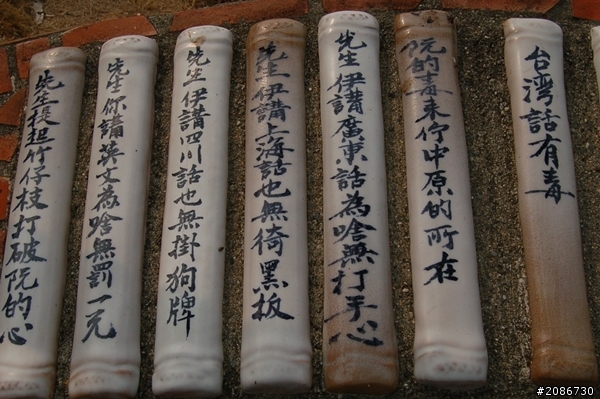 台湾話有毒
阮的毒來佇中原的所在
先生伊講廣東話為啥無打手心
先生伊講上海話也無徛黑板
先生伊講四川話也無掛狗牌
先生你講英文為啥無罰一元
先生提担竹仔枝打破阮的心
#2086730